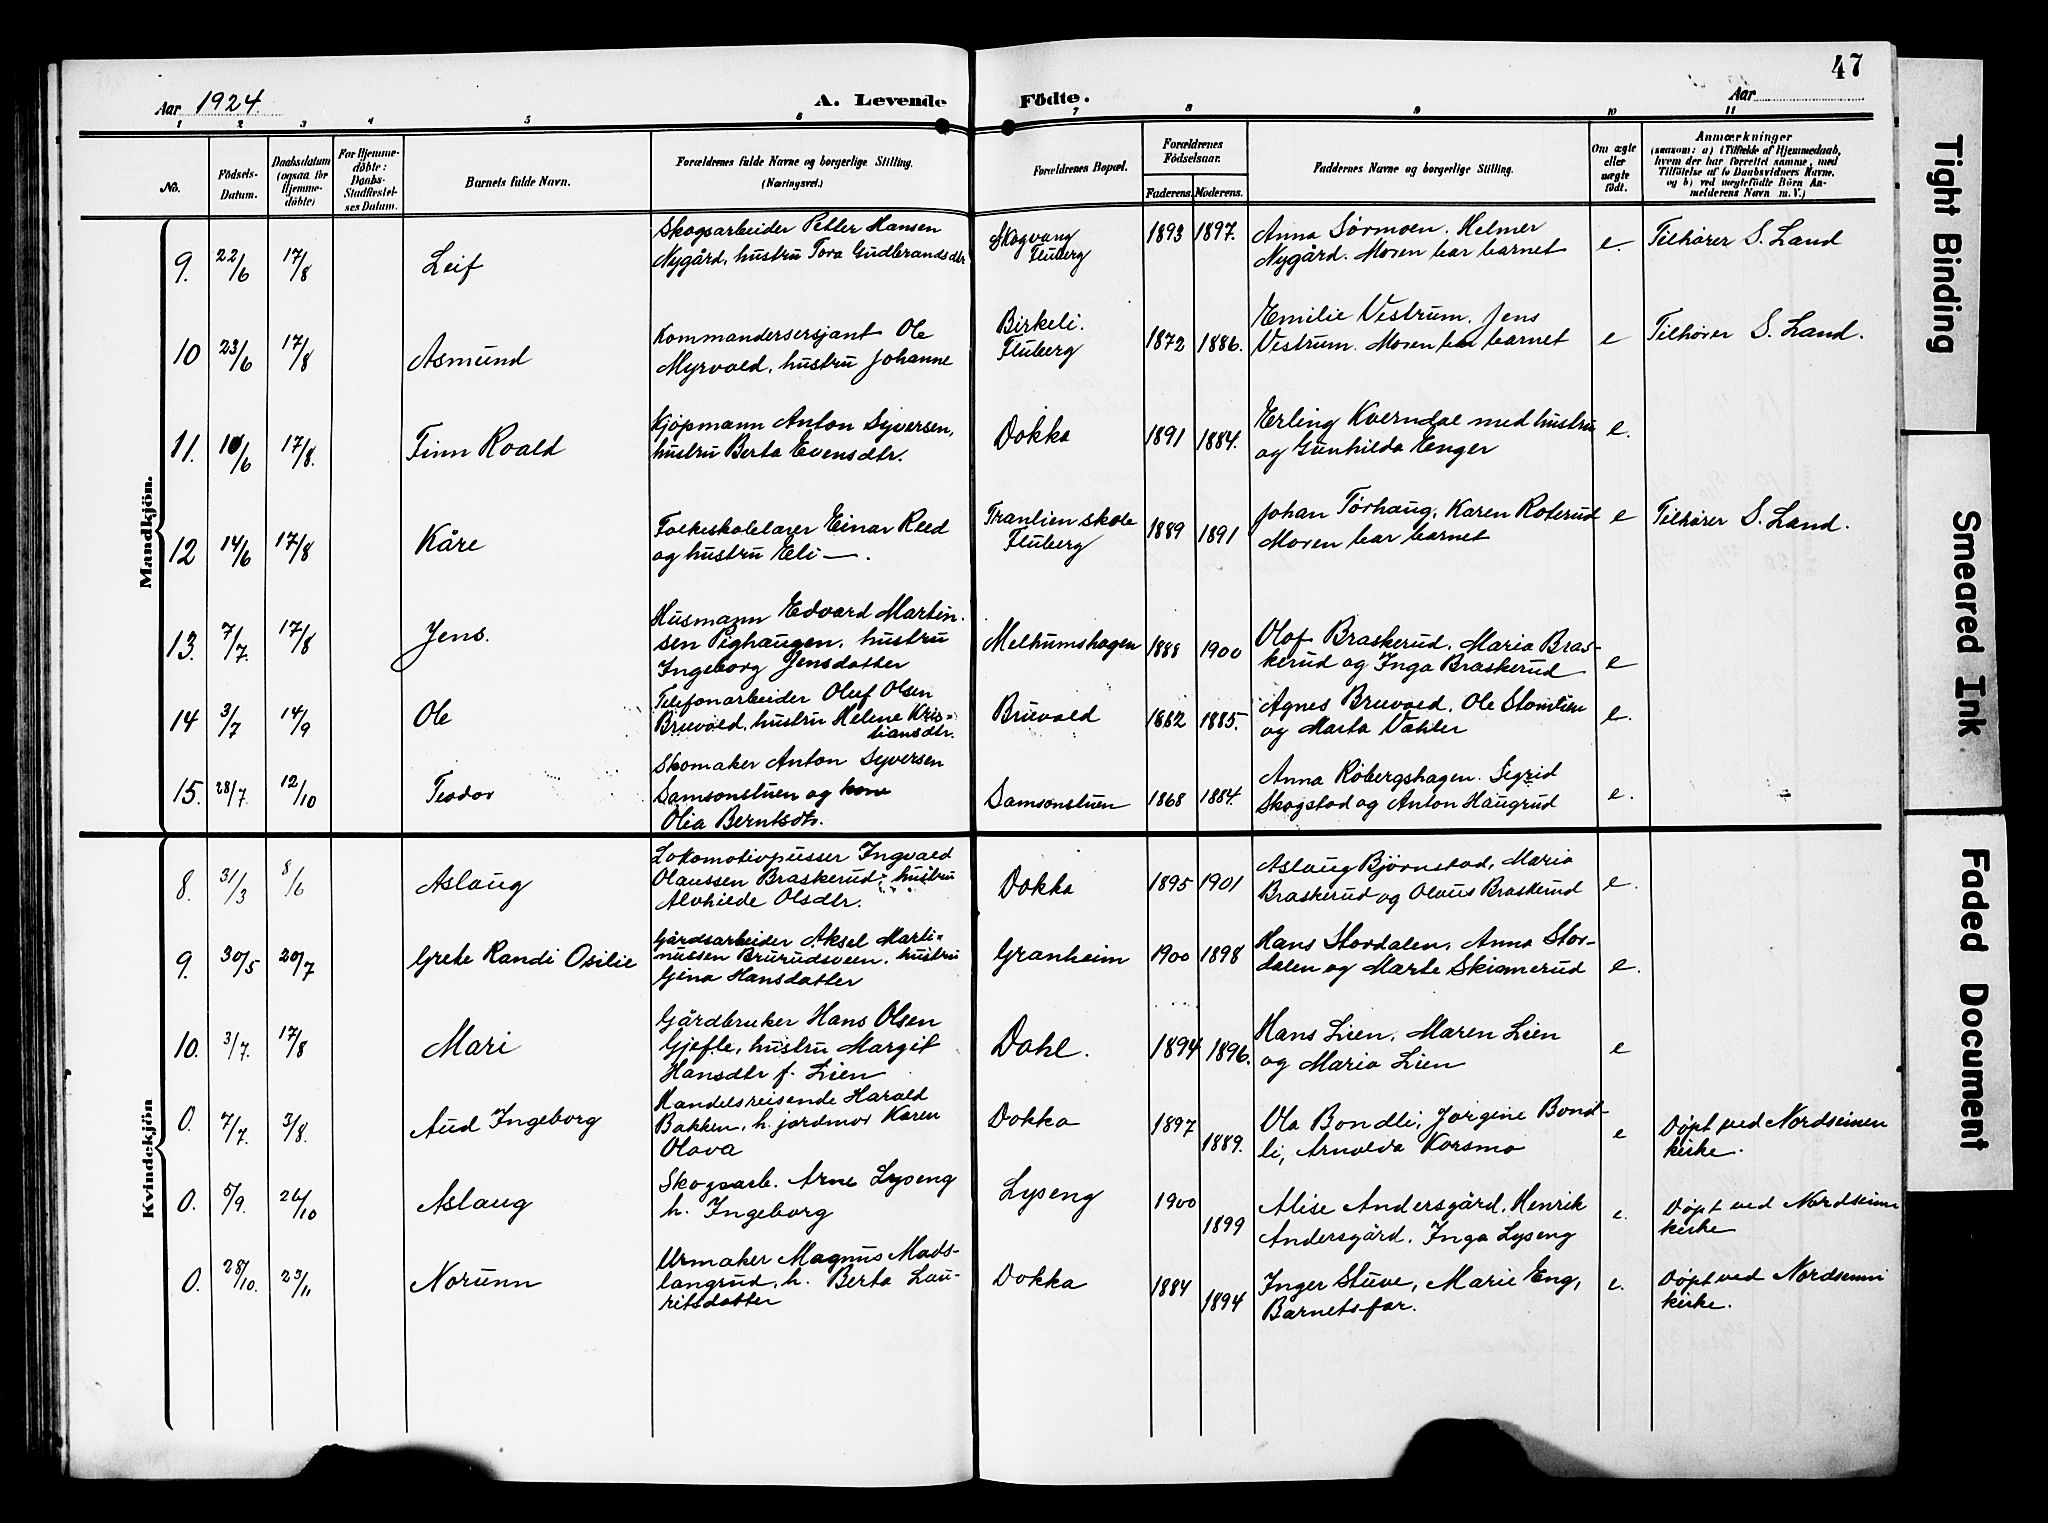 47
Aar 1924.
A. Levende Födte.
Aar
1 2 3 4 5 6 7 8 9 10 11
No.
Födsels-
Datum.
Daabsdatum
(ogsaa for
Hjemme-
döbte)
For Hjemme-
döbte:
Daabs-
Stadfæstel-
ses Datum.
Barnets fulde Navn.
Forældrenes fulde Navne og borgerlige Stilling.
(Næringsvei.)
Forældrenes Bopæl.
Forældrenes
Födselsaar.
Faderens.
Moderens.
Faddernes Navne og borgerlige Stilling.
Om ægte
eller
uægte
födt.
Anmærkninger
(saasom: a) i Tilfælde af Hjemmedaab,
hvem der har forrettet samme, med
Tilföielse af to Daabsvidners Navne,
og b) ved uægtefödte Börn An-
melderens Navn m. V.)
Mandkjön.
9. 22/6 17/8 Leif
Skogsarbeider Petter Hansen
Nygård, hustru Tora Gudbrandsdtr
Skogvang
Fluberg
1893 1897.
Anna Sørmoen. Helmer
Nygård. Moren bar barnet
e. Tilhører S. Land
10 23/6 17/8 Asmund
Kommandersersjant Ole
Myrvold, hustru Johanne
Birkeli.
Fluberg
1872 1886.
Emilie Vestrum. Jens
Vestrum. Moren bar barnet
e Tilhører S. Land.
11. 10/6 17/8. Finn Roald
Kjøpmann Anton Syversen,
hustru Berta Evensdtr.
Dokka
1891 1884.
Erling Kverndal med hustru
og Gunhilda Enger
e.
12 14/6 17/8 Kåre
Folkeskolelærer Einar Reed
og hustru Eli —.
Tranlien skole
Fluberg
1889 1891
Johan Tørhaug, Karen Roterud
Moren bar barnet
e Tilhører S. Land.
13. 7/7. 17/8 Jens.
Husmann Edvard Martin-
sen Pighaugen, hustru
Ingeborg Jensdatter
Melhumshagen
1888 1900
Olof Braskerud, Maria Bras-
kerud og Inga Braskerud
e
14 3/7 14/9 Ole
Telefonarbeider Oluf Olsen
Bruvold, hustru Helene Kris=
tiansdtr.
Bruvold
1882 1885.
Agnes Bruvold, Ole Stomlien
og Marta
e.
15. 28/7. 12/10 Teodor
Skomaker Anton Syversen
Samsonstuen og kone
Olia Berntsdtr.
Samsonstuen
1868 1884.
Anna Røbergshagen. Sigrid
Skogstad og Anton Haugrud
e.
Kvindekjön
8. 31/3 8/6 Aslaug
Lokomotivpusser Ingvald
Olaussen Braskerud, hustru
Alvhilde Olsdtr.
Dokka
1895 1901
Aslaug Bjørnstad, Maria
Braskerud og Olaus Braskerud
e.
9. 30/5 20/7 Grete Randi Osilie
Gårdsarbeider Aksel Marti=
nussen Brurudsveen, hustru
Gina Hansdatter
Granheim
1900 1898
Hans Stordalen, Anna Stor-
dalen og Marte Skiamerud
e.
10. 3/7. 17/8 Mari
Gårdbruker Hans Olsen
Gjefle, hustru Margit
Hansdtr f. Lien
Dahl.
1894 1896.
Hans Lien, Maren Lien
og Maria Lien
e
0. 7/7. 3/8. Aud Ingeborg
Handelsreisende Harald
Bakken, h. jordmor Karen
Olava
Dokka
1897
1889.
Ola Bondli, Jørgine Bond-
li, Arnolda Korsmo
e
Døpt ved Nordsinnen
kirke.
0. 5/9. 26/10 Aslaug
Skogsarb. Arne Lyseng
h. Ingeborg
Lyseng
1900
1899
Alise Andersgård, Henrik
Andersgård, Inga Lyseng
e.
Døpt ved Nordsinni
kirke
0. 28/10. 23/11 Norunn
Urmaker Magnus Mads-
langrud, h. Berta Lau-
ritsdatter
Dokka
1884
1894
Inger Stuve, Marie Eng,
Barnets far.
e.
Døpt ved Nordsinni
kirke.
Tight Binding
Smeared Ink
Faded Document